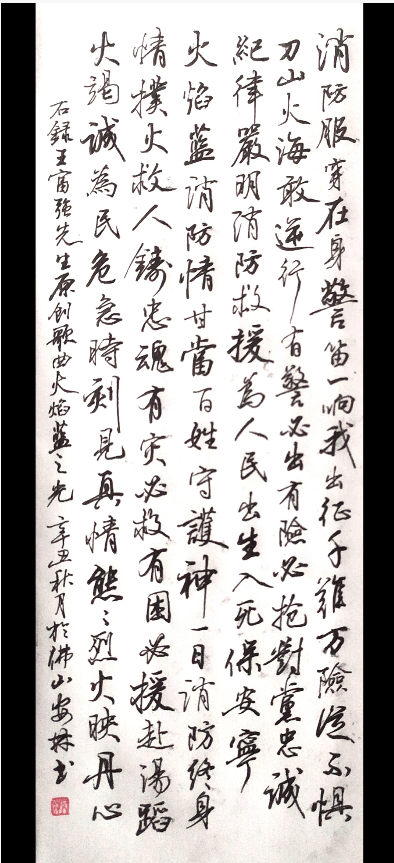 消防服穿在身警笛一响我出征千難万險從不惧
刀山火海敢逆行有警必出有險必抢對黨忠誠
紀律嚴明消防救援為人民出生入死保安寧
火焰藍消防情甘當百姓守護神一日消防终身
情撲火救人鑄忠魂有灾必救有困必援赴湯蹈
火竭誠為民危急時刻見真情熊〻烈火映丹心
右録王富强先生原創歌曲火焰藍之光 辛丑秋月於佛山安林书